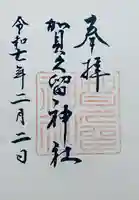 奉拝
賀久留神社
令和七年二月二日